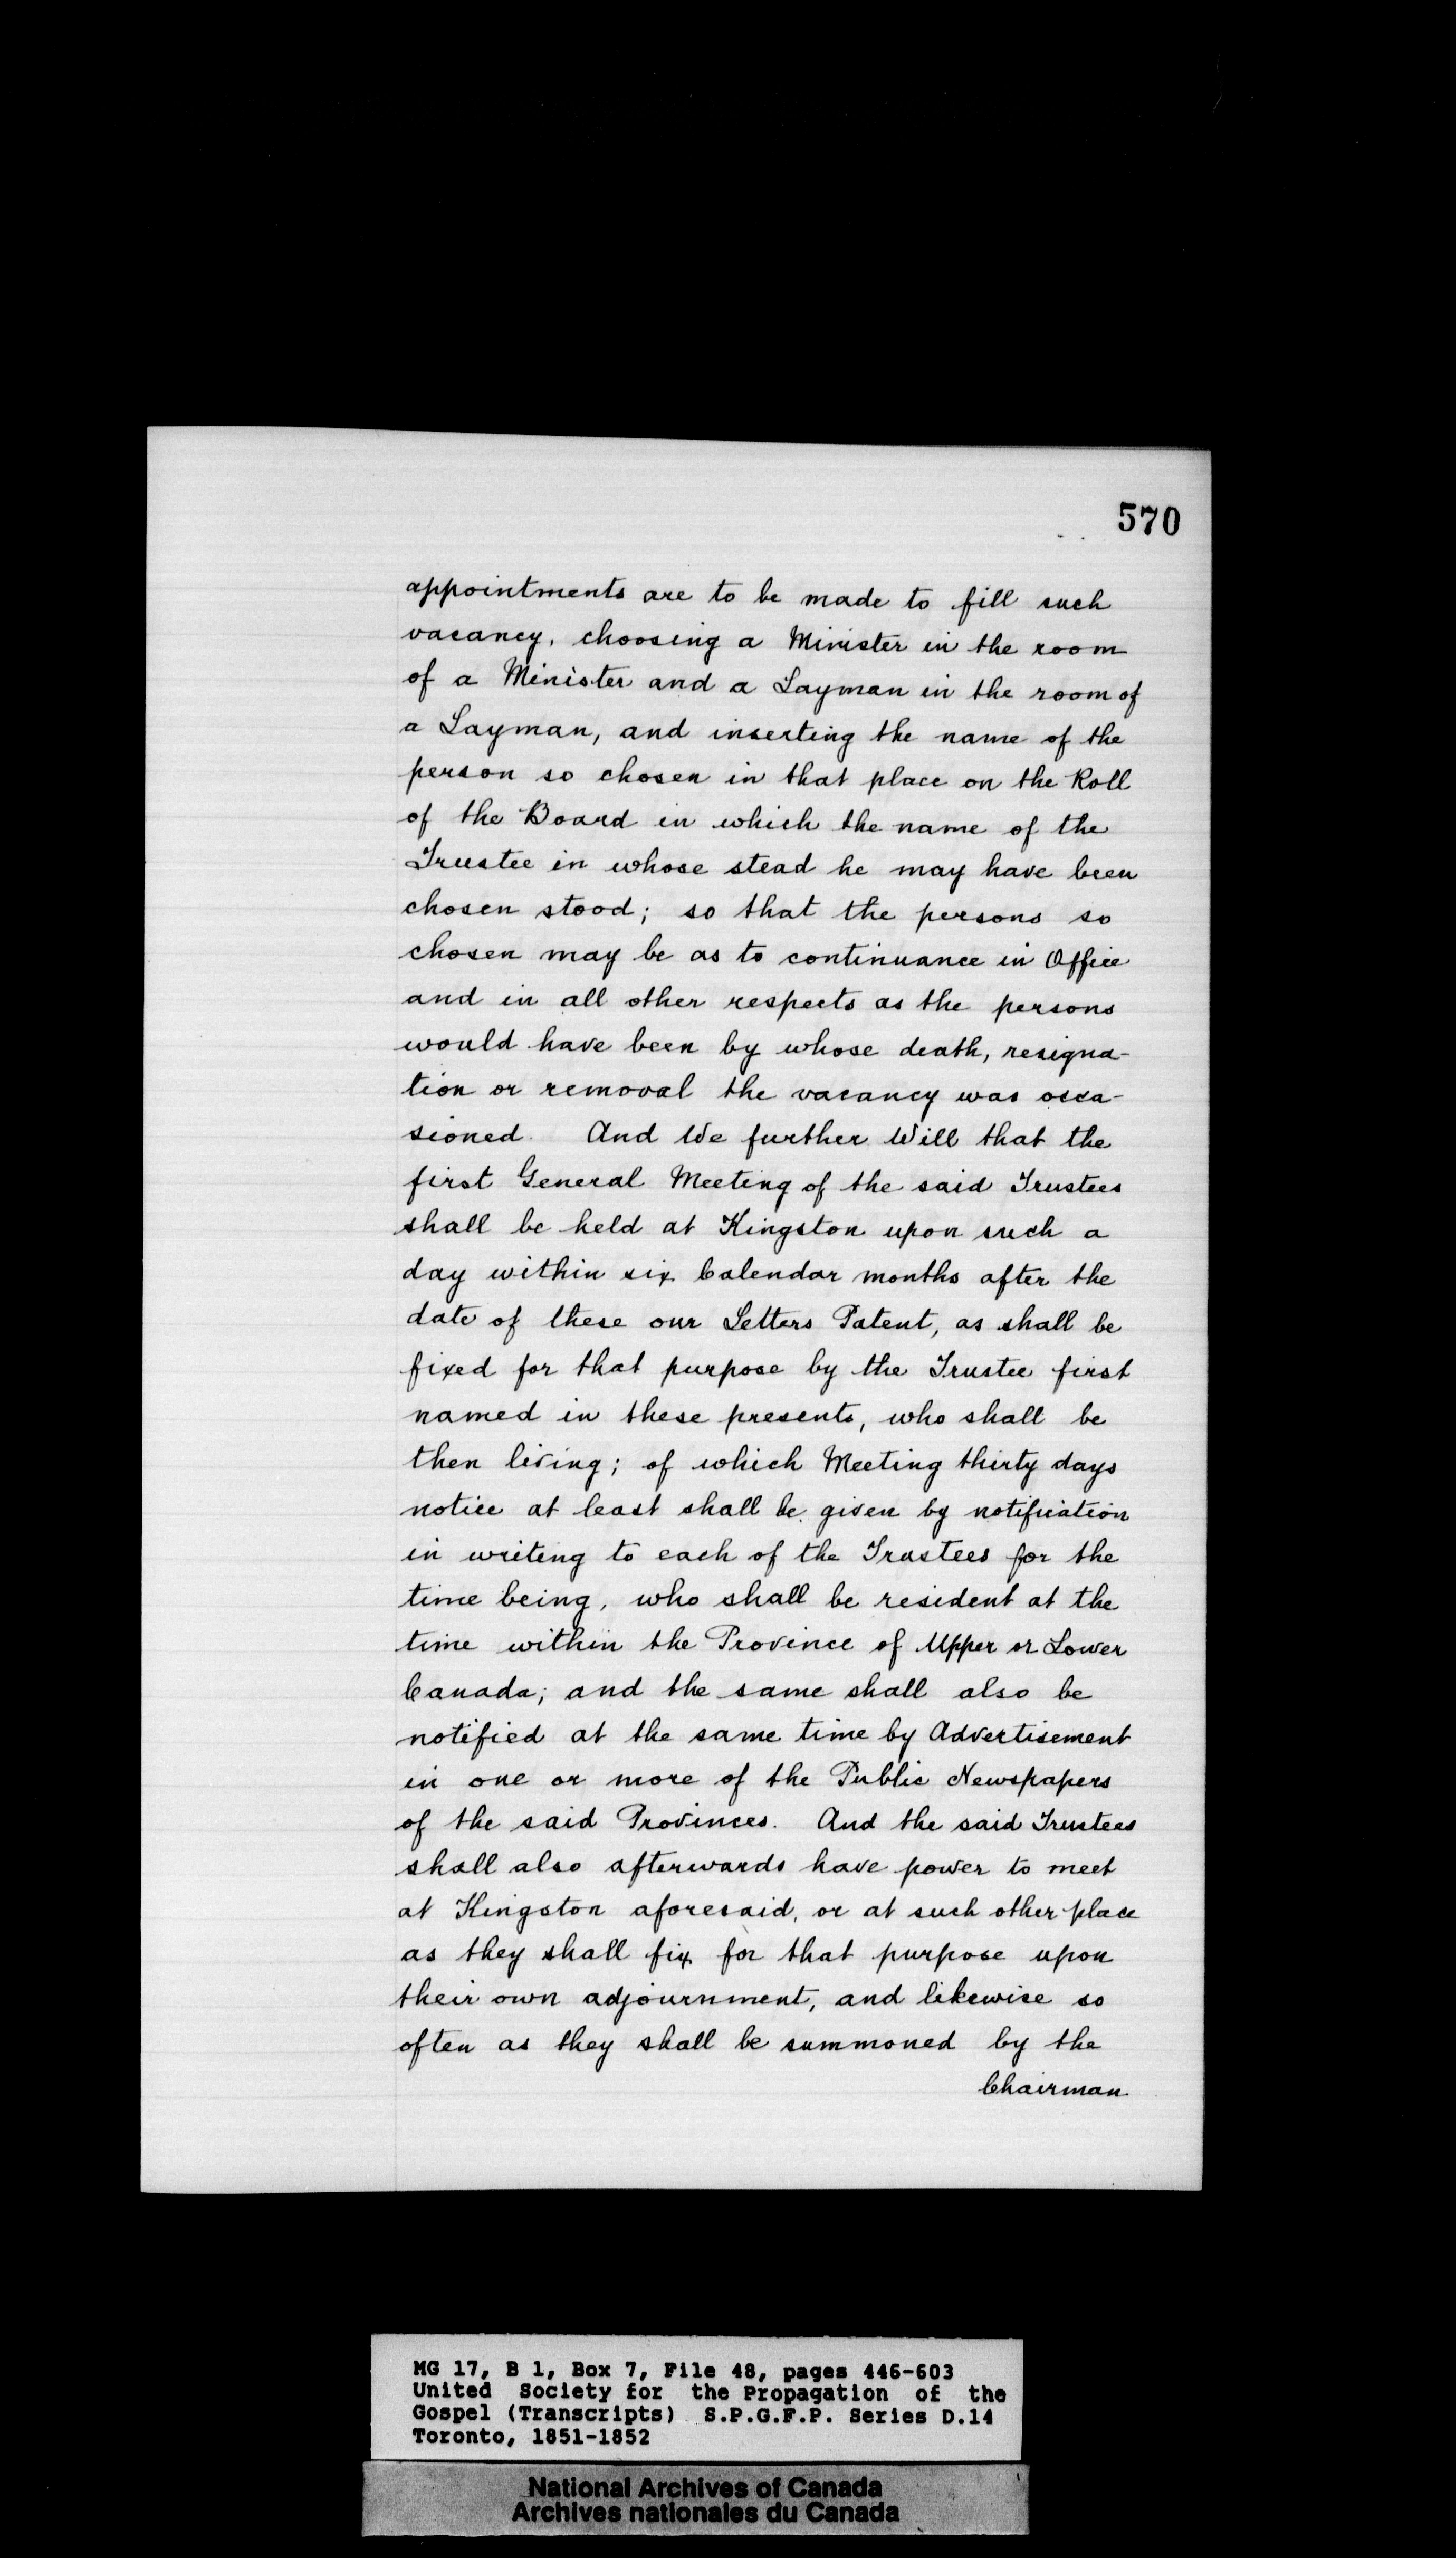 570
appointments are to be made to fill such
vacancy, choosing a Minister in the room
of a Minister and a Layman in the room of
a Layman, and inserting the name of the
person so chosen in that place on the Roll
of the Board in which the name of the
Trustee in whose stead he may have been
chosen stood; so that the persons so
chosen may be as to continuance in Office
and in all other respects as the persons
would have been by whose death, resigna-
tion or removal the vacancy was occa-
sioned. And We further Will that the
first General Meeting of the said Trustees
shall be held at Kingston upon such a
day within six Calendar months after the
date of these our Letters Patent, as shall be
fixed for that purpose by the Trustee first
named in these presents, who shall be
then living; of which Meeting thirty days
notice at least shall be given by notification
in writing to each of the Trustees for the
time being, who shall be resident at the
time within the Province of Upper or Lower
Canada; and the same shall also be
notified at the same time by Advertisement
in one or more of the Public Newspapers
of the said Provinces. And the said Trustees
shall also afterwards have power to meet
at Kingston aforesaid, or at such other place
as they shall fix for that purpose upon
their own adjournment, and likewise so
often as they shall be summoned by the
Chairman
MG 17, B 1, Box 7, File 48, pages 446-603
United Society for the Propagation of the
Gospel (Transcripts) S.P.G.F.P. Series D.14
Toronto, 1851-1852
National Archives of Canada
Archives nationales du Canada